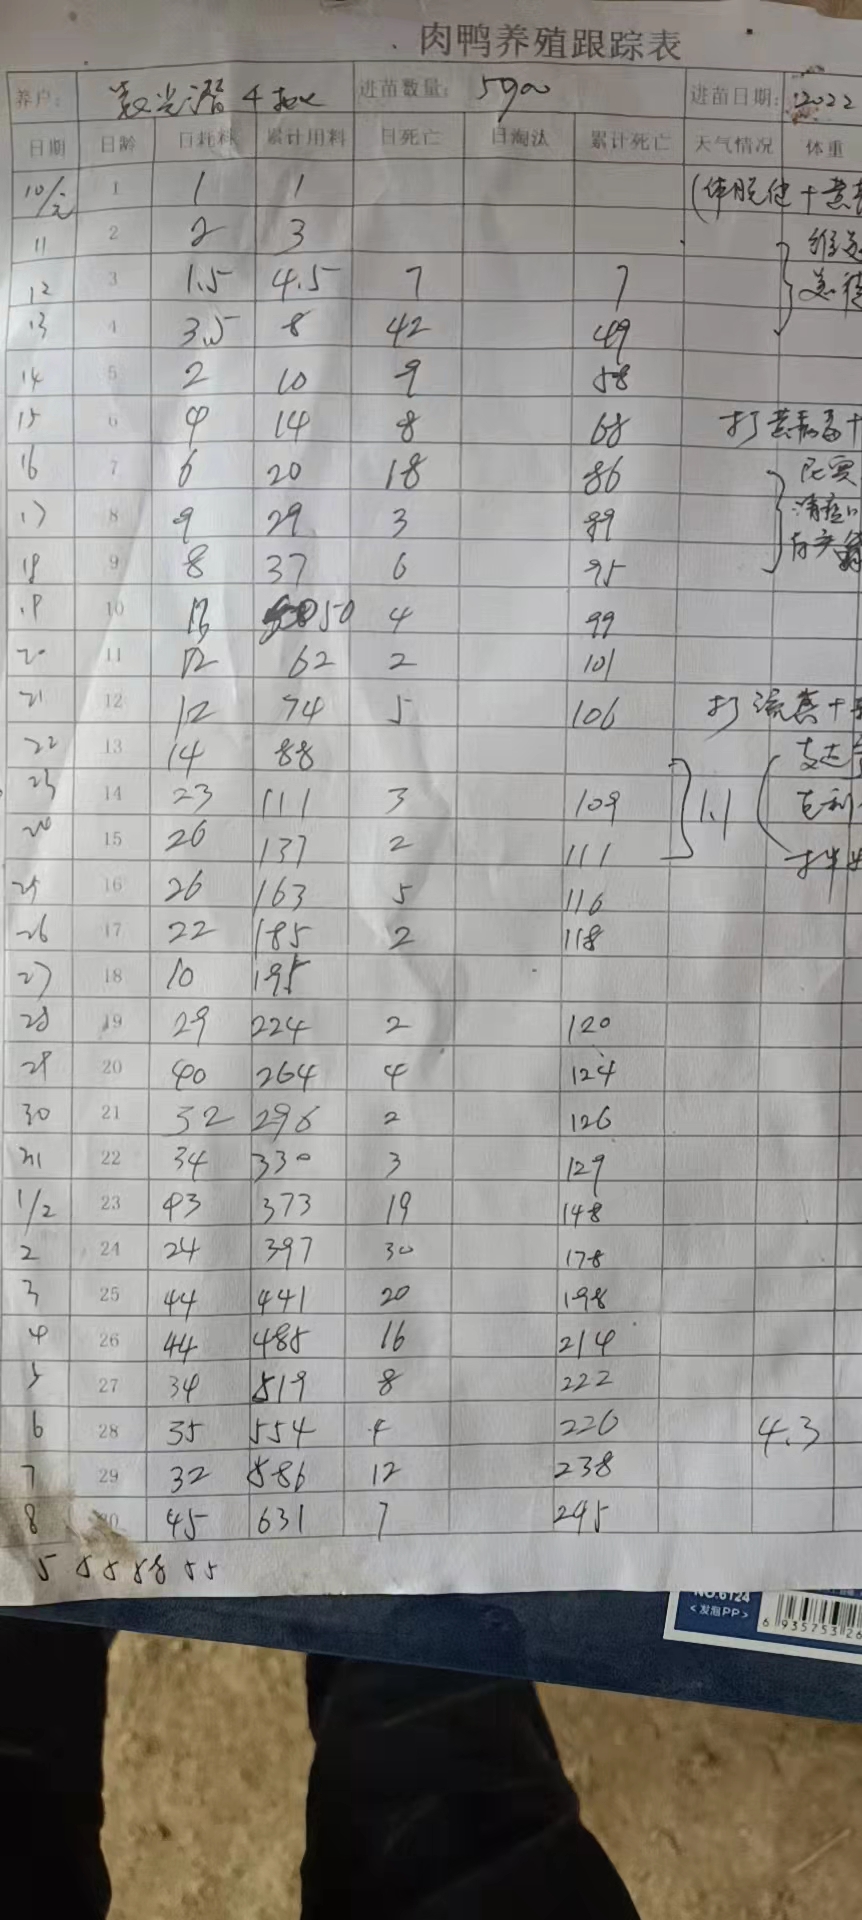 肉鸭养殖跟踪表
养户: 光 4 进苗数量: 5900 进苗日期: 2022
日期 日龄 日耗料 累计用料 日死亡 日淘汰 累计死亡 天气情况 体重
10/元 1 1 1
11 2 2 3
12 3 1.5 4.5 7 7
13 4 3.5 8 42 49
14 5 2 10 9 58
15 6 4 14 8 68 打黄病毒十
16 7 6 20 18 86
17 8 9 29 3 89
18 9 8 37 6 95
19 10 13 50 4 99
20 11 12 62 2 101
21 12 12 74 5 106 打流感十
22 13 14 88
23 14 23 111 3 109 1.1
24 15 26 137 2 111
25 16 26 163 5 116
26 17 22 185 2 118
27 18 10 195
28 19 29 224 2 120
29 20 40 264 4 124
30 21 32 296 2 126
31 22 34 330 3 129
1/2 23 43 373 19 148
2 24 24 397 30 178
3 25 44 441 20 198
4 26 44 485 16 214
5 27 34 519 8 222
6 28 35 554 4 226 4.3
7 29 32 586 12 238
8 30 45 631 7 245
5 8 8 8 8 5 5
NO.6124
<发泡PP>
6 935753 26